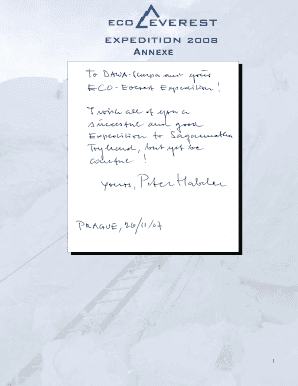 ECO EVEREST
EXPEDITION 2008
ANNEXE
To DAWA-Sherpa and your
ECO-Everest Expedition!
I wish all of you a
successful and good
Expedition to Sagarmatha
Try hard, but yet be
careful!
Yours, Peter Habeler
PRAGUE, 26/11/07
1